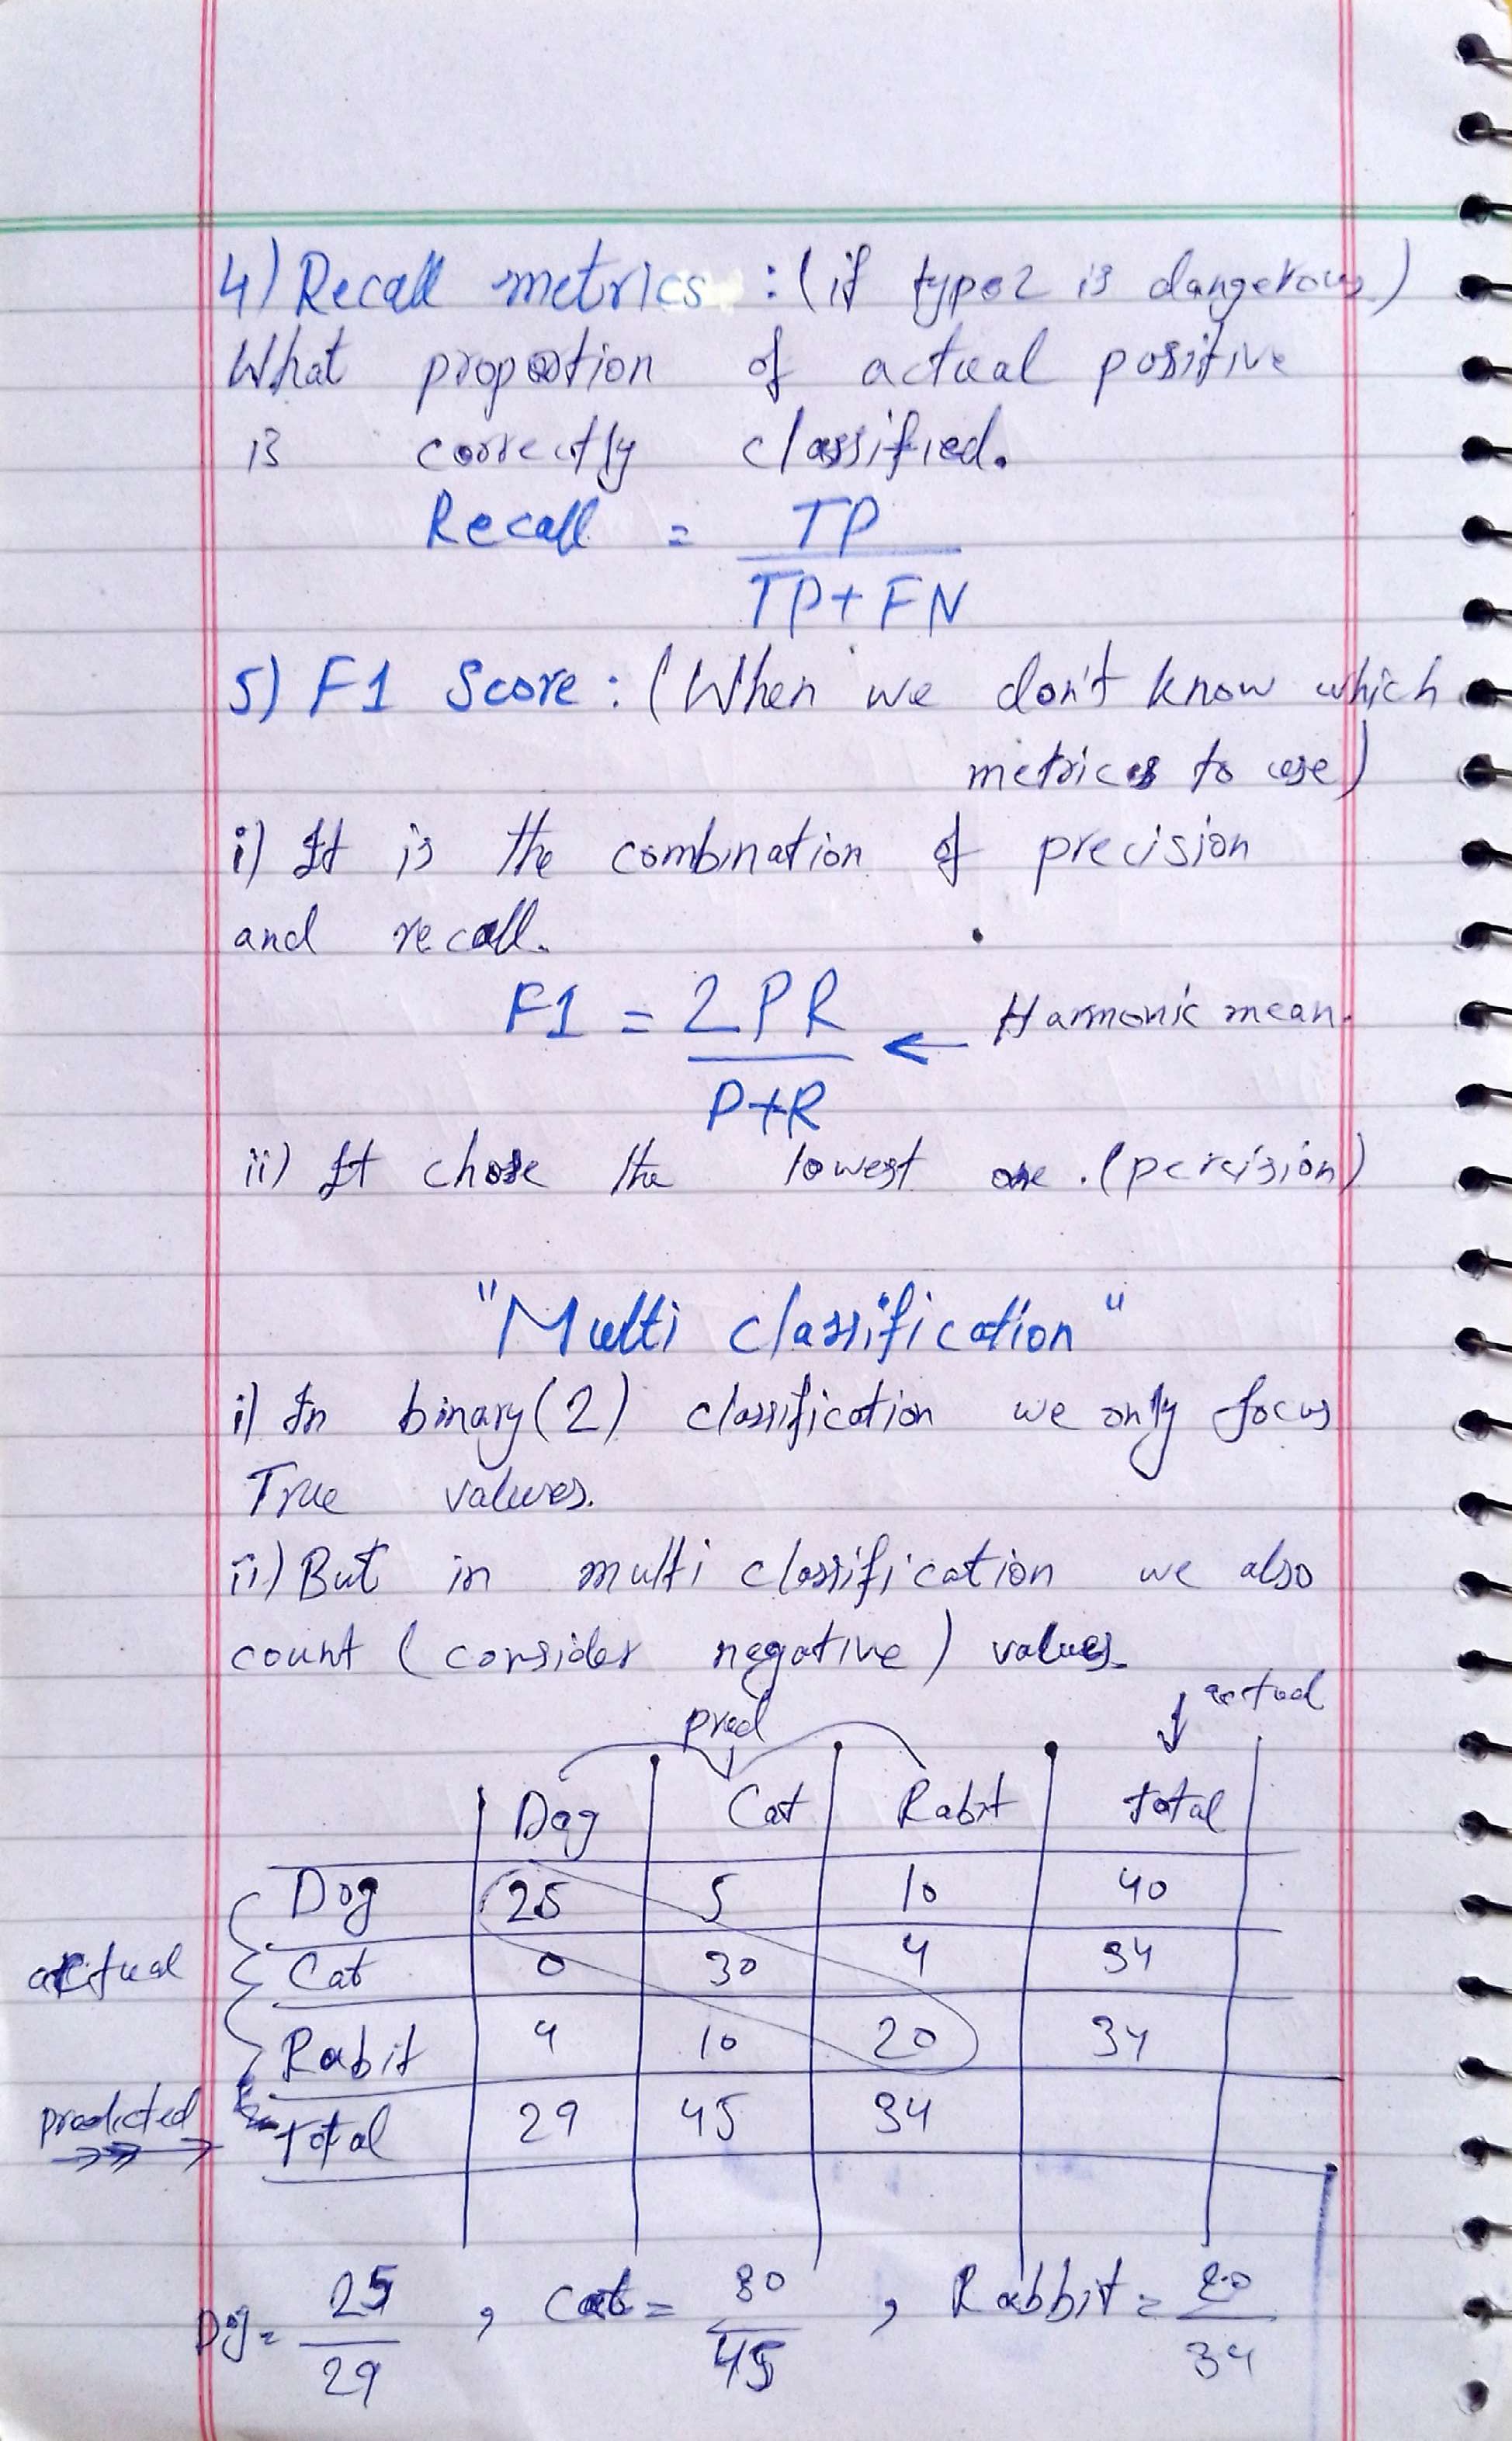 4) Recall metrics : (if type 2 is dangerous)
What proportion of actual positive
is correctly classified.
Recall = TP
TP+FN
5) F1 Score : (When we don't know which
metrices to use)
i) It is the combination of precision
and recall.
F1 = 2PR ← Harmonic mean.
P+R
ii) It chose the lowest one. (percision)
"Multi classification"
i) In binary(2) classification we only focus
True values.
ii) But in multi classification we also
count (consider negative) values.
pred ↓ actual
Dog Cat Rabit total
Dog 25 5 10 40
actual Cat 0 30 4 34
Rabit 4 10 20 34
predicted total 29 45 34
Dog = 25 , Cat = 30 , Rabbit = 20
29 45 34